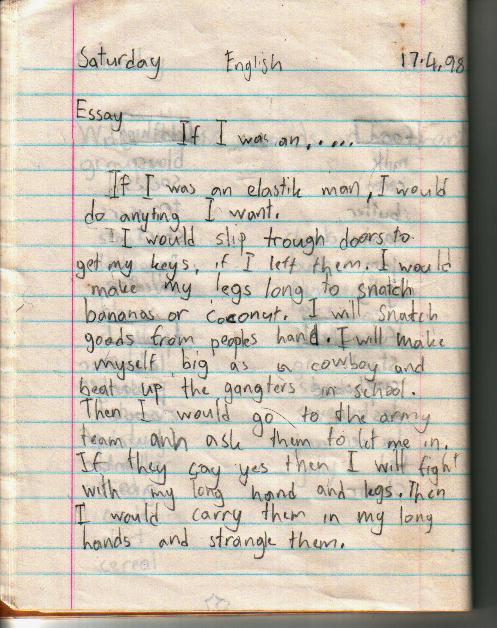 Saturday English 17.4.98
Essay
If I was an.....
If I was an elastik man, I would
do anyting I want.
I would slip trough doors to
get my keys, if I left them. I would
make my legs long to snatch
bananas or coconut. I will snatch
goods from peoples hand. I will make
myself big as a cowboy and
beat up the gangters in school.
Then I would go to the army
team ahh ask them to let me in.
If they say yes then I will fight
with my long hand and legs. Then
I would carry them in my long
hands and strangle them.
cereal